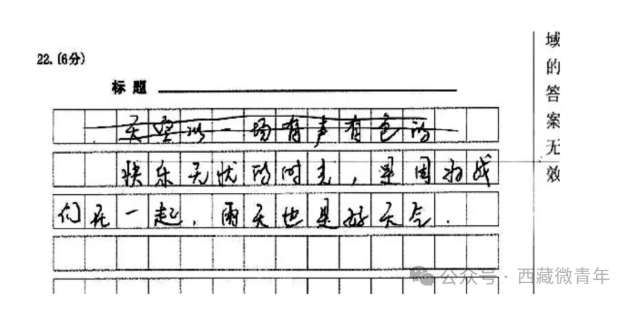 22.(6分)
标题
天空以一场有声有色的
快乐无忧的时光，是因为我
们在一起，雨天也是好天气.
域的答案无效
公众号·西藏微青年